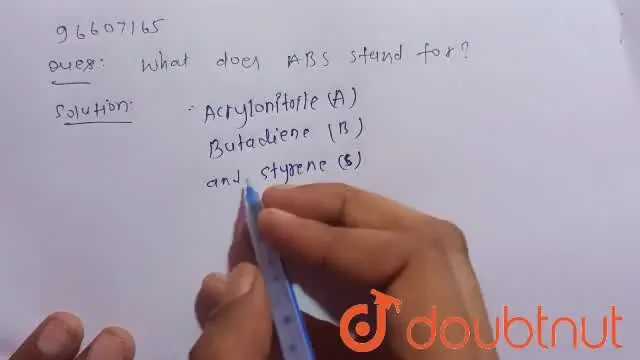 96607165
Ques: What does ABS stand for?
Solution: Acrylonitrile (A)
Butadiene (B)
and styrene (S)
doubtnut